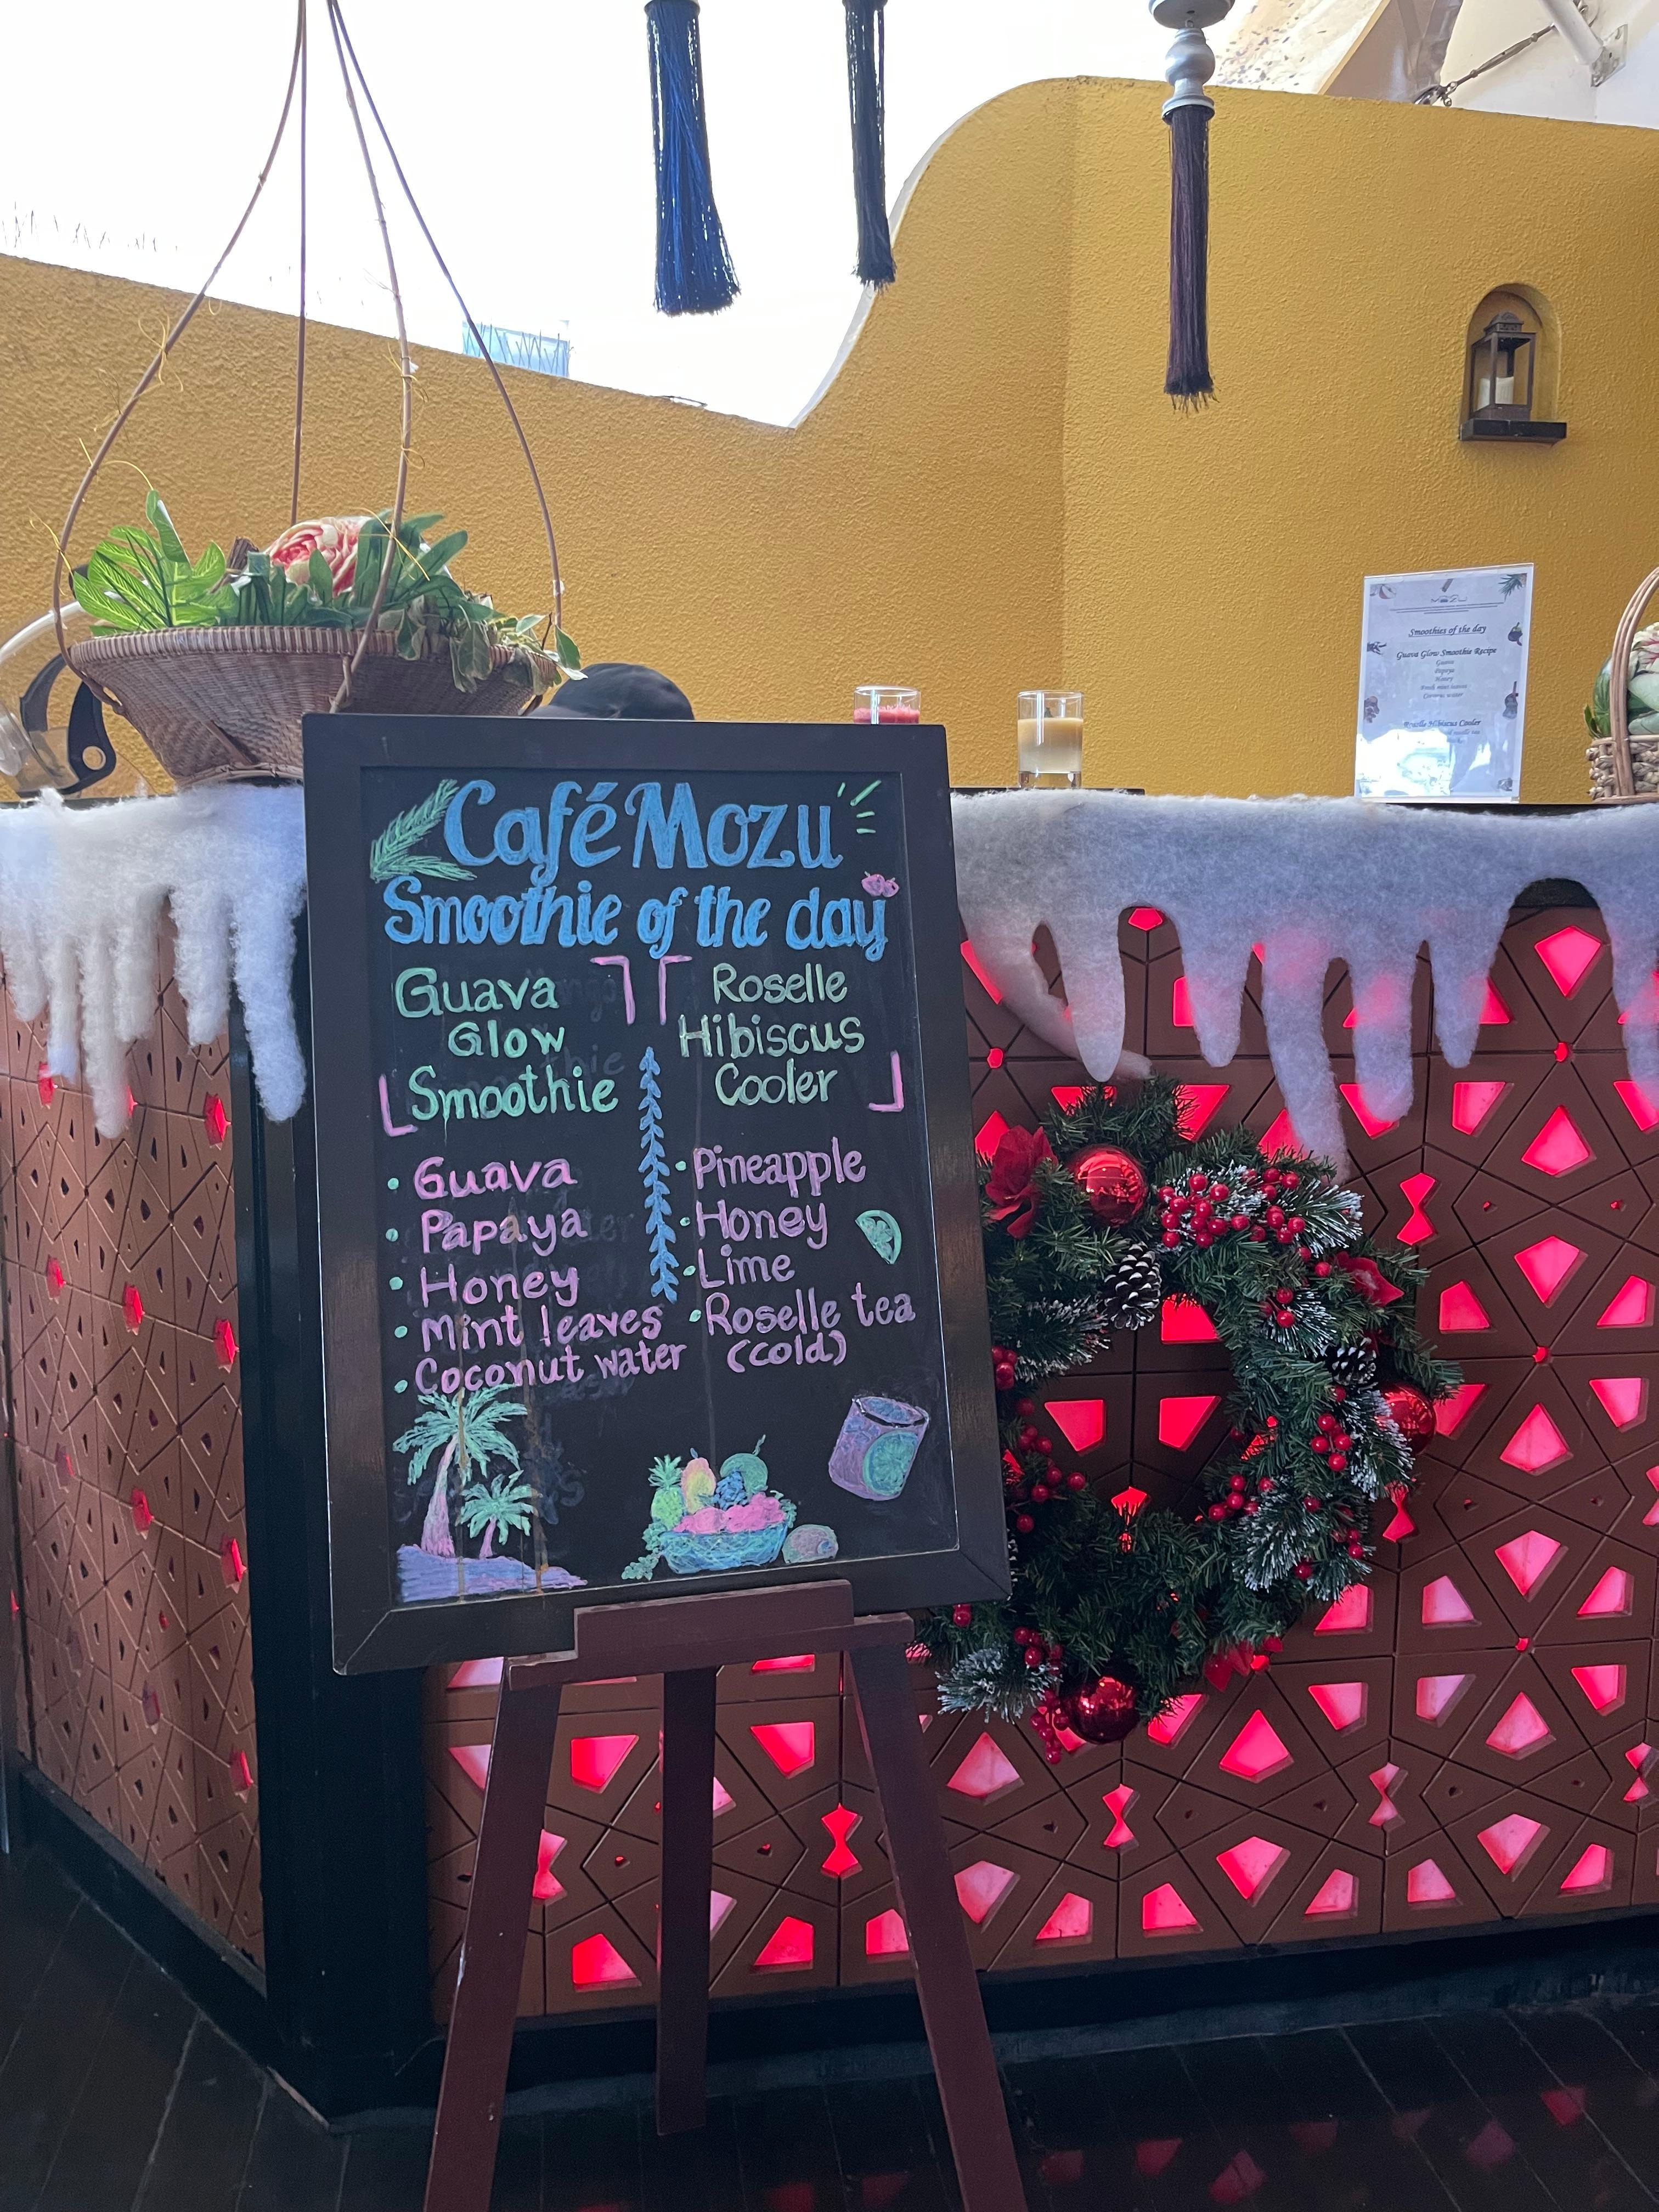 Café Mozu
Smoothie of the day
Guava
Glow
Smoothie
• Guava
• Papaya
• Honey
• Mint leaves
• Coconut water
Roselle
Hibiscus
Cooler
• Pineapple
• Honey
• Lime
• Roselle tea
(cold)
Smoothies of the day
Guava Glow Smoothie Recipe
Guava
Papaya
Honey
Fresh mint leaves
Coconut water
Roselle Hibiscus Cooler